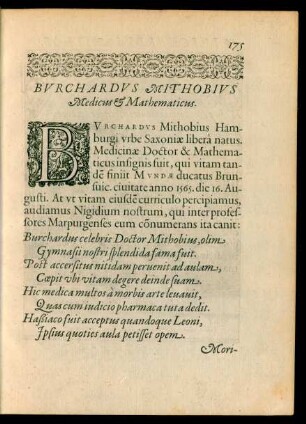 175
BVRCHARDVS MITHOBIVS
Medicus & Mathematicus.
BVRCHARDVS Mithobius Ham
burgi vrbe Saxoniæ liberâ natus.
Medicinæ Doctor & Mathema
ticus insignis fuit, qui vitam tan
dē finiit MVNDÆ ducatus Brun-
suic. ciuitate anno 1565. die 16. Au
gusti. At vt vitam eiusdē curriculo percipiamus,
audiamus Nigidium nostrum, qui inter profes
sores Marpurgenses eum cōnumerans ita canit:
Burchardus celebris Doctor Mithobius, olim
Gymnasii nostri splendida fama fuit.
Post accersitus nitidam peruenit ad aulam,
Cœpit vbi vitam degere deinde suam.
Hic medica multos à morbis arte leuauit,
Quas cum iudicio pharmaca tuta dedit.
Hassiaco fuit acceptus quandoque Leoni,
Ipsius quoties aula petisset opem.
Mori-